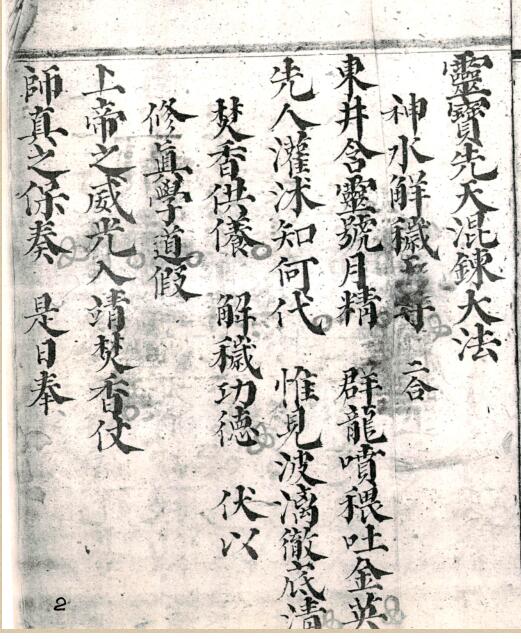 靈寶先天混鍊大法
神水解穢 二合
東井含靈號月精 群龍噴穢吐金英
先人灌沭知何代 惟見波漓徹底清
焚香供儀 解穢功德 伏以
修真學道假
上帝之威光入靖焚香仗
師真之保奏 是日奉
2